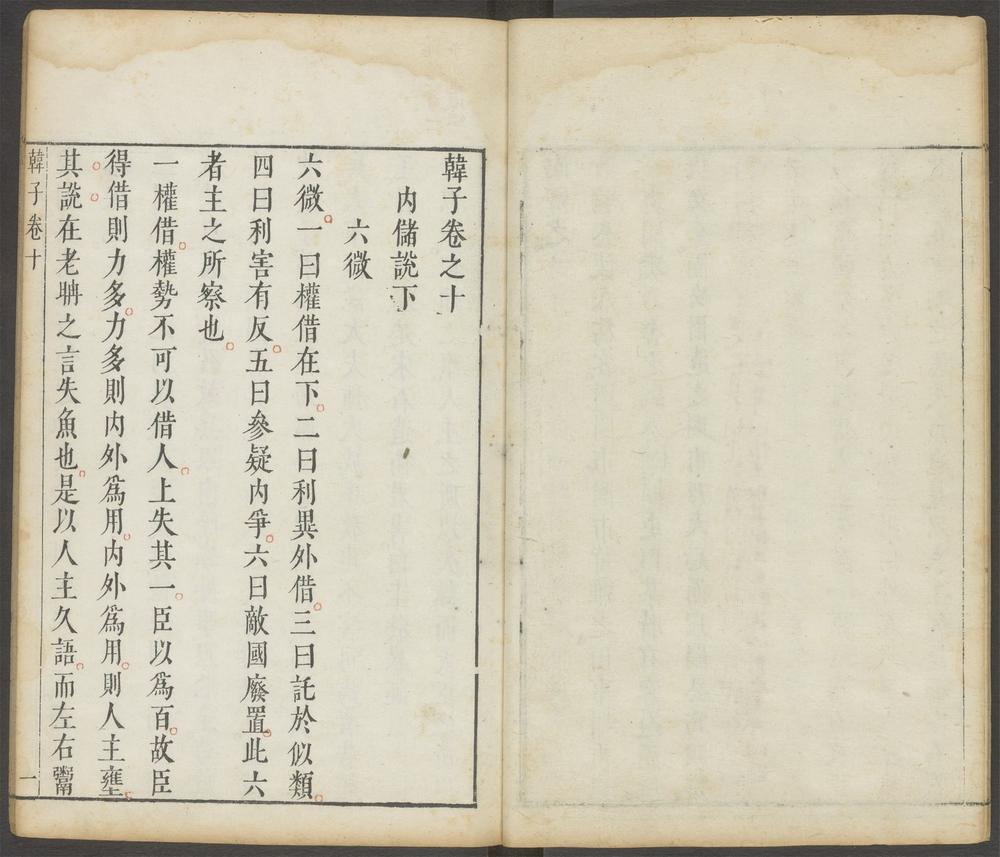 韓子卷之十
內儲說下
六微
六微。一曰權借在下。二曰利異外借。三曰託於似類。
四曰利害有反。五曰參疑內爭。六曰敵國廢置。此六
者主之所察也。
一權借。權勢不可以借人。上失其一。臣以爲百。故臣
得借則力多。力多則內外爲用。內外爲用。則人主壅。
其說在老聃之言失魚也。是以人主久語。而左右鬻
韓子卷十
一